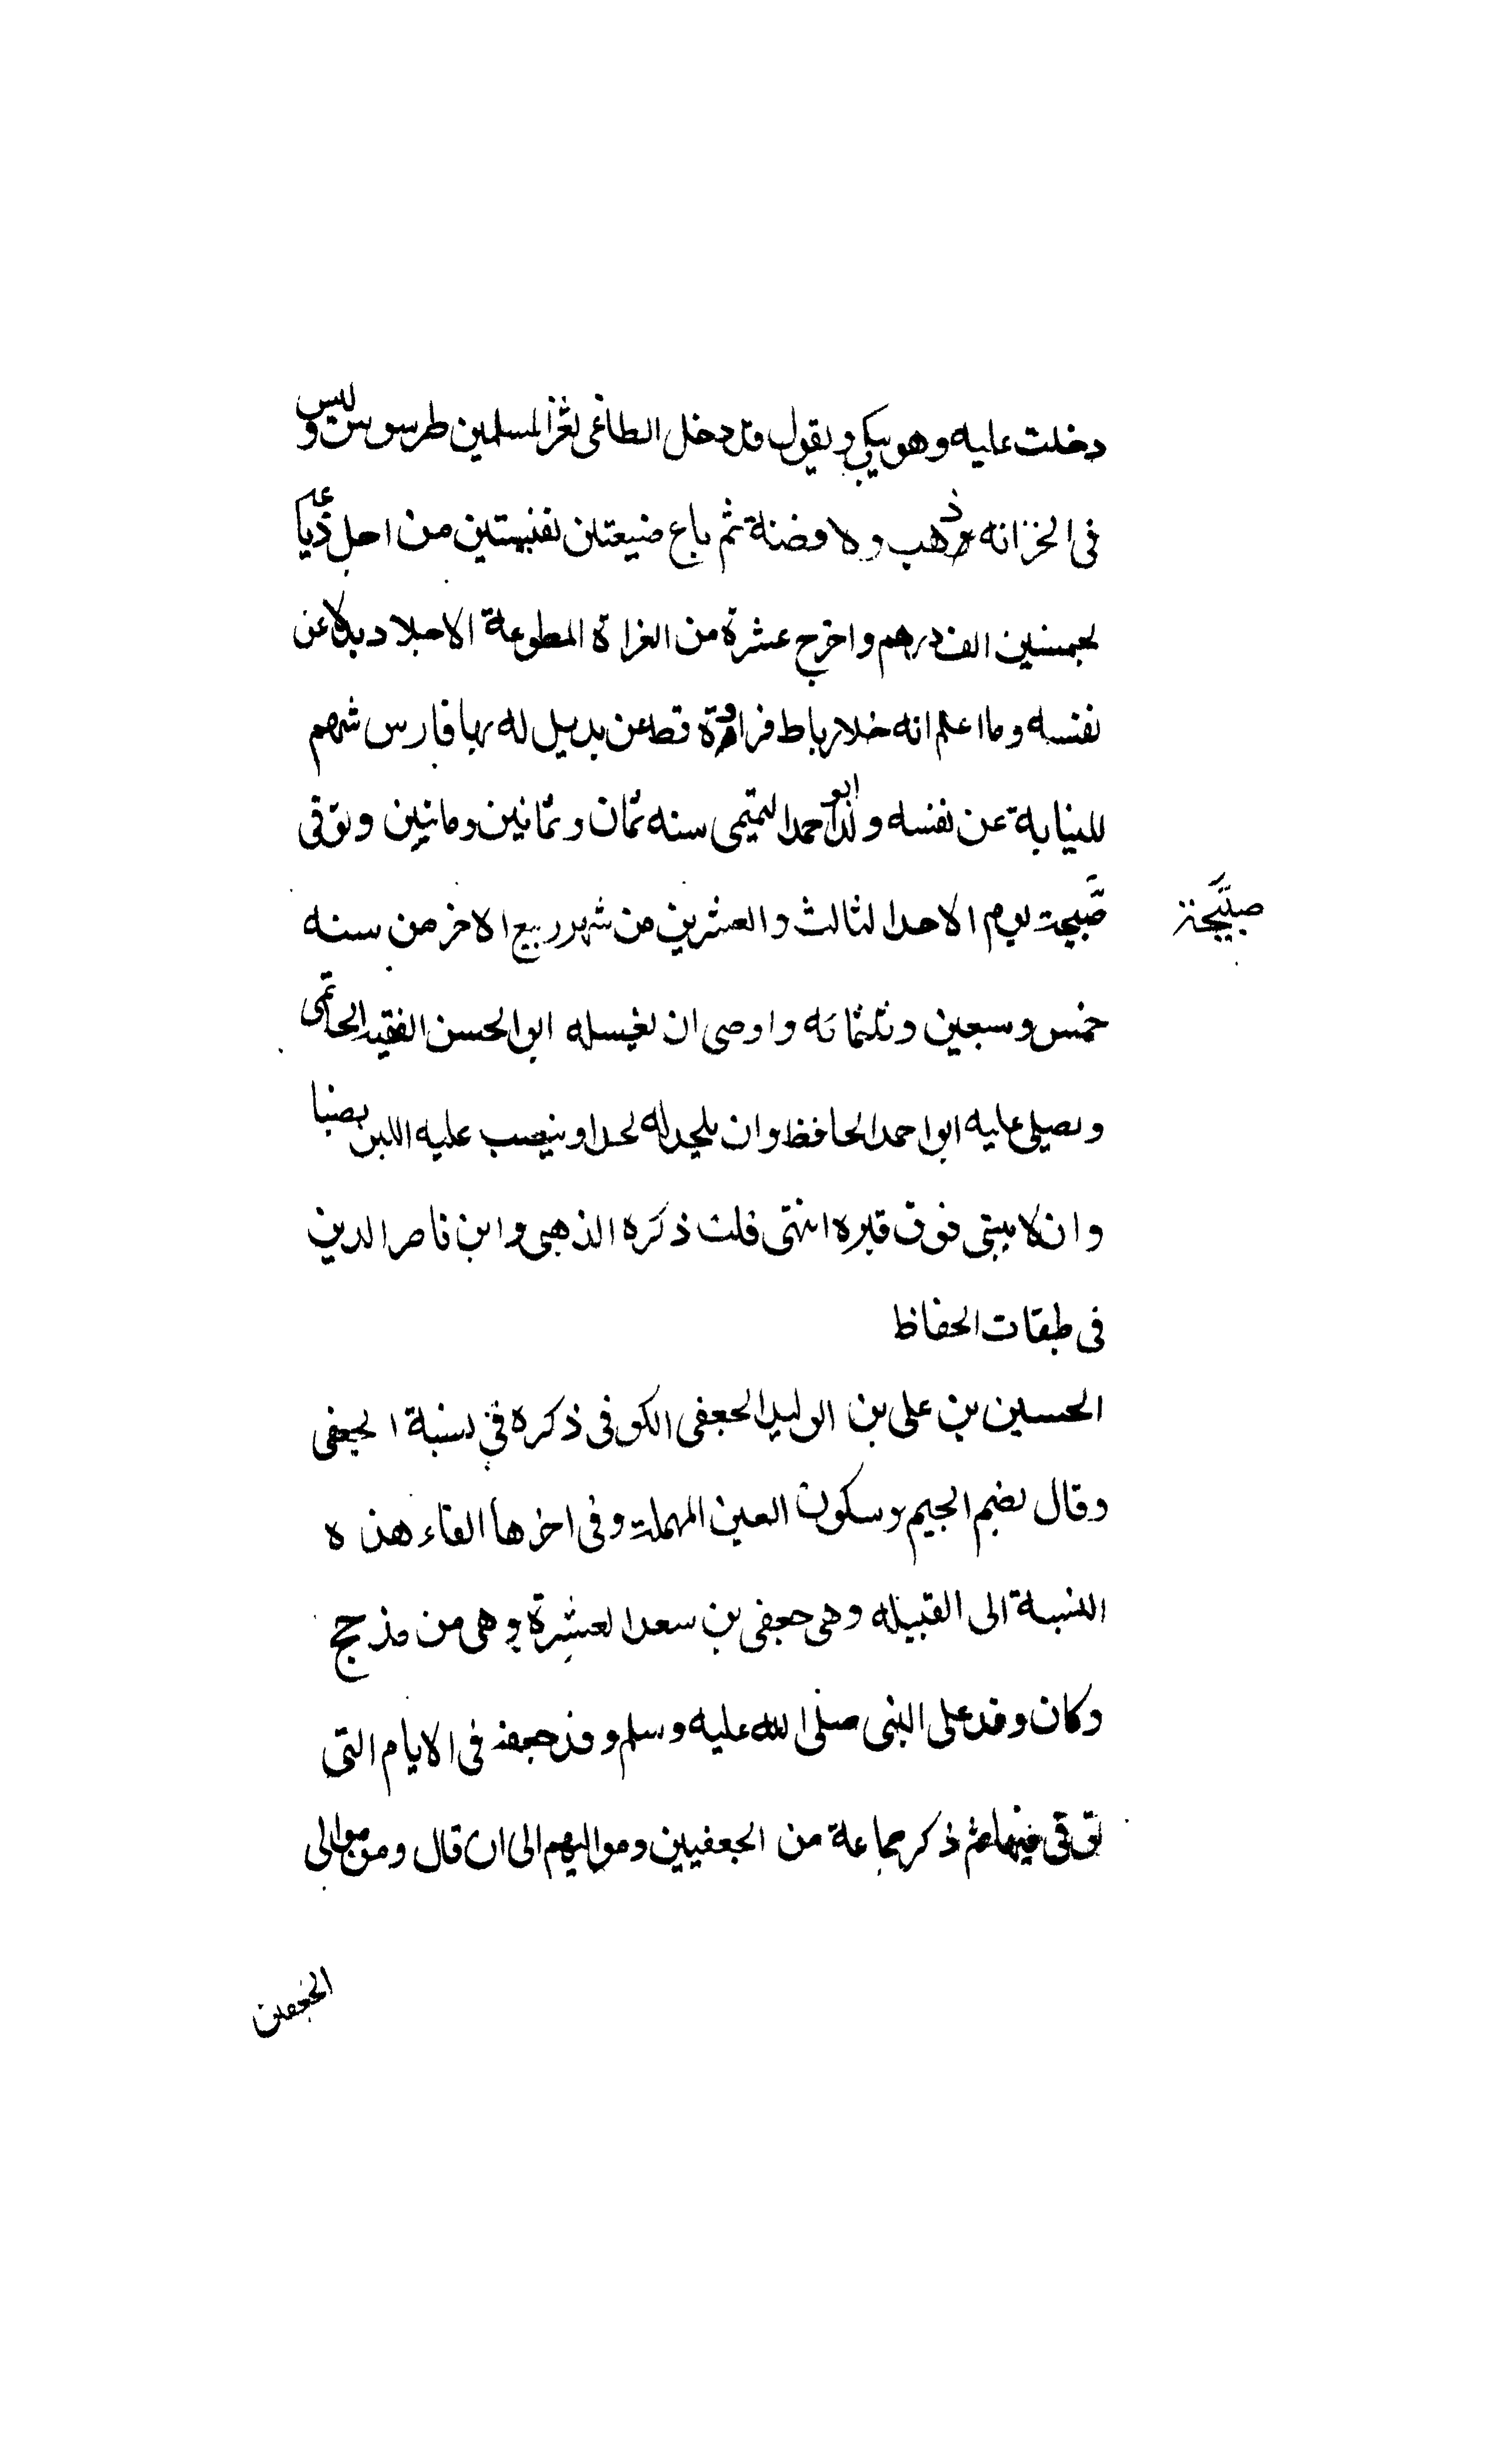 دخلت عليه وهو يبكي ويقول قد دخل الطاغي ثغر المسلمين طرسوس وليس
في الخزانة ذهب ولا فضة ثم باع ضيعتين نفيستين من اجل
بخمسين الف درهم واخرج عشرة من الغزاة المطوعة الاجلاد بدلا عن
نفسه وما اعلم انه خلا رباط فراوة قط عن بديل له بها فارس شهم
للنيابة عن نفسه ولد ابو احمد التميمي سنه ثمان وثمانين ومائتين وتوفي
صبيحة يوم الاحد الثالث والعشرين من شهر ربيع الاخر من سنه
صبيحة
خمس وسبعين وثلثمائه واوصى ان يغسله ابو الحسن الفقيه الحاتمي
ويصلي عليه ابو احمد الحافظ وان يلحد له لحدا وينصب عليه اللبن نصبا
وان لا يبنى فوق قبره انتهى قلت ذكره الذهبي وابن ناصر الدين
في طبقات الحفاظ
الحسين بن علي بن الوليد الجعفي الكوفي ذكره في نسبة الجعفي
وقال بضم الجيم وسكون العين المهملة وفي اخرها الفاء هذه
النسبة الى القبيله وهي جعفي بن سعد العشرة وهي من مذحج
وكان وفد على النبي صلى الله عليه وسلم وفد جعفة في الايام التي
توفي فيها ثم ذكر جماعة من الجعفيين ومواليهم الى ان قال ومن موالي
الجعفين